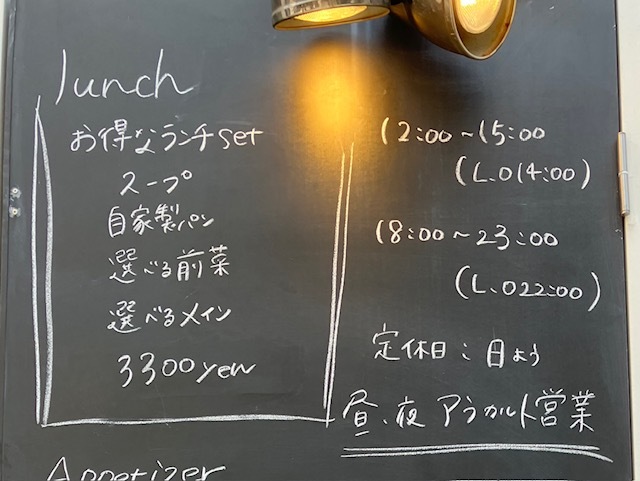 lunch
お得なランチset
スープ
自家製パン
選べる前菜
選べるメイン
3300yen
12:00~15:00
(L.O14:00)
18:00~23:00
(L.O22:00)
定休日:日よう
昼、夜 アラカルト営業
Appetizer